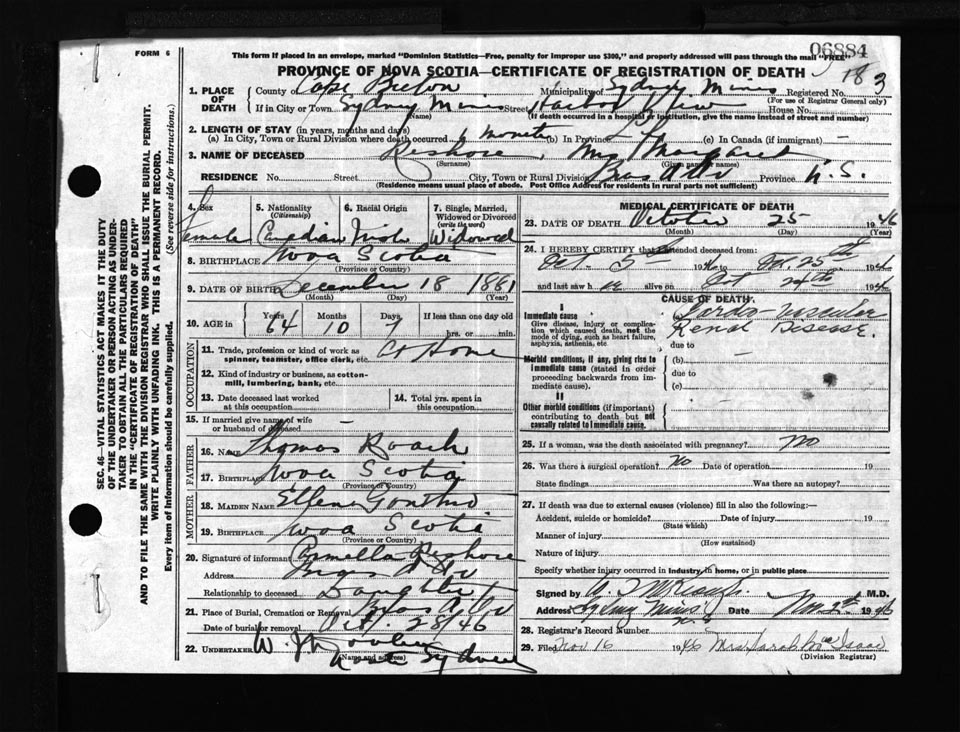 06884
FORM 6
This form if placed in an envelope, marked "Dominion Statistics—Free, penalty for improper use $300," and properly addressed will pass through the mail "FREE"
PROVINCE OF NOVA SCOTIA—CERTIFICATE OF REGISTRATION OF DEATH
18 3
1. PLACE OF DEATH County of Cape Breton Municipality of Sydney Mines Registered No.
(For use of Registrar General only)
If in City or Town Sydney Mines Street Harbor View House No.
(Name) (If death occurred in a hospital or institution, give the name instead of street and number)
2. LENGTH OF STAY (in years, months and days)
(a) In City, Town or Rural Division where death occurred (b) In Province Life (c) In Canada (if immigrant)
3. NAME OF DECEASED Mrs Margaret
(Surname) (Given name or names)
RESIDENCE No. Street City, Town or Rural Division Bras d'Or Province N.S.
(Residence means usual place of abode. Post Office Address for residents in rural parts not sufficient)
SEC. 46—VITAL STATISTICS ACT MAKES IT THE DUTY
OF THE UNDERTAKER OR PERSON ACTING AS UNDER-
TAKER TO OBTAIN ALL THE PARTICULARS REQUIRED
IN THE "CERTIFICATE OF REGISTRATION OF DEATH"
AND TO FILE THE SAME WITH THE DIVISION REGISTRAR WHO SHALL ISSUE THE BURIAL PERMIT.
WRITE PLAINLY WITH UNFADING INK. THIS IS A PERMANENT RECORD.
Every item of information should be carefully supplied. (See reverse side for instructions.)
4. Sex 5. Nationality (Citizenship) 6. Racial Origin 7. Single, Married, Widowed or Divorced (write the word)
Female Canadian Irish Widowed
8. BIRTHPLACE Nova Scotia
(Province or Country)
9. DATE OF BIRTH December 18 1881
(Month) (Day) (Year)
10. AGE in Years Months Days If less than one day old
64 10 7 hrs. or min.
OCCUPATION
11. Trade, profession or kind of work as spinner, teamster, office clerk, etc. At Home
12. Kind of industry or business, as cotton-mill, lumbering, bank, etc.
13. Date deceased last worked at this occupation
14. Total yrs. spent in this occupation
15. If married give name of wife or husband of deceased —
FATHER
16. NAME Thomas Roach
17. BIRTHPLACE Nova Scotia
(Province or Country)
MOTHER
18. MAIDEN NAME Ellen
19. BIRTHPLACE Nova Scotia
(Province or Country)
20. Signature of informant
Address
Relationship to deceased Daughter
21. Place of Burial, Cremation or Removal Bras d'Or
Date of burial or removal Oct. 28/46
22. UNDERTAKER W. J.
(Name and address) Sydney
MEDICAL CERTIFICATE OF DEATH
23. DATE OF DEATH October 25 1946
(Month) (Day) (Year)
24. I HEREBY CERTIFY that I attended deceased from:
Oct. 5th 1946 to Oct. 25th 1946
and last saw her alive on Oct 24th 1946
CAUSE OF DEATH
Immediate cause
Give disease, injury or complication which caused death, not the mode of dying, such as heart failure, asphyxia, asthenia, etc.
Cardio-vascular
Renal Disease
due to
Morbid conditions, if any, giving rise to immediate cause (stated in order proceeding backwards from immediate cause).
(b) —
due to
(c)
Other morbid conditions (if important) contributing to death but not causally related to immediate cause.
25. If a woman, was the death associated with pregnancy? No
26. Was there a surgical operation? No Date of operation 19
State findings Was there an autopsy?
27. If death was due to external causes (violence) fill in also the following:—
Accident, suicide or homicide? Date of injury 19
(State which)
Manner of injury
(How sustained)
Nature of injury
Specify whether injury occurred in industry, in home, or in public place
Signed by M.D.
Address Sydney Mines N.S. Date Nov 2nd 1946
28. Registrar's Record Number
29. Filed Nov 16 1946 Mrs Sarah MacIsaac
(Division Registrar)